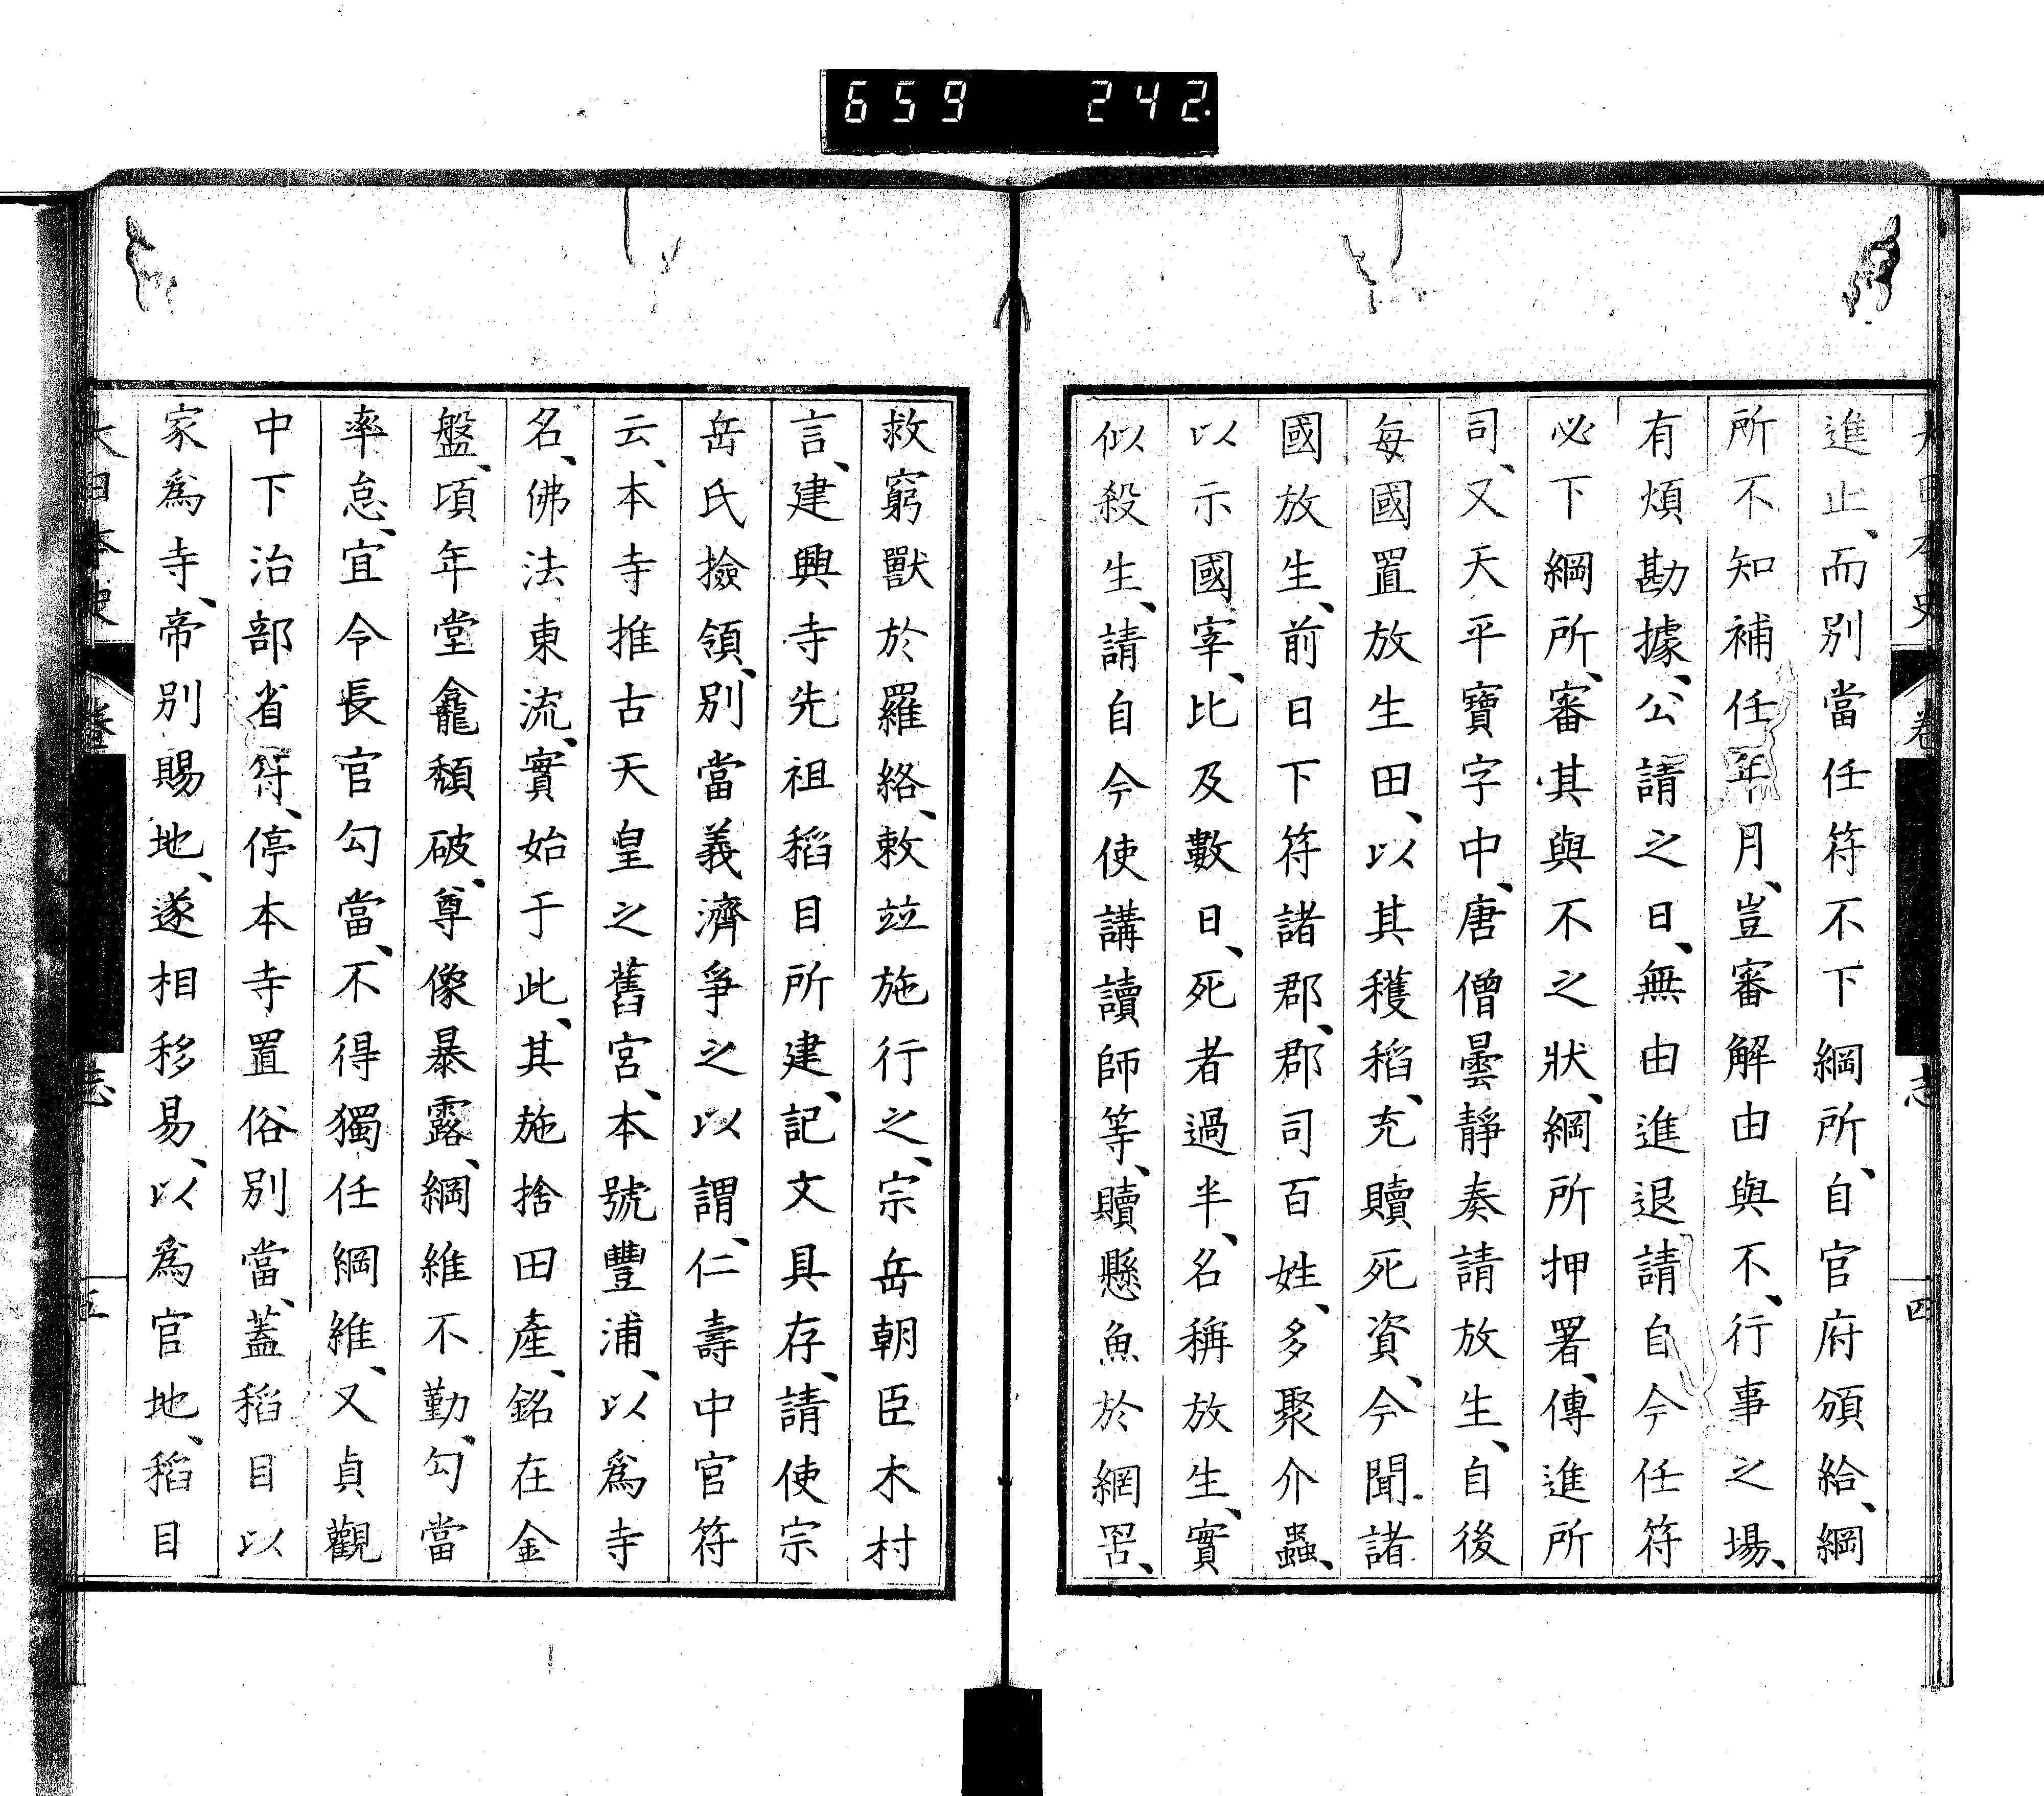 659 242.
大日本史 卷 志 四
進止、而別當任符不下綱所、自官府頒給、綱
所不知補任年月、豈審解由與不、行事之場、
有煩勘據、公請之日、無由進退請自今任符
必下綱所、審其與不之狀、綱所押署、傳進所
司、又天平寶字中、唐僧曇靜奏請放生、自後
每國置放生田、以其穫稻、充贖死資、今聞諸
國放生、前日下符諸郡、郡司百姓、多聚介蟲、
以示國宰、比及數日、死者過半、名稱放生、實
似殺生、請自今使講讀師等、贖懸魚於網罟、
救窮獸於羅絡、敕竝施行之、宗岳朝臣木村
言、建興寺先祖稻目所建、記文具存、請使宗
岳氏撿領、別當義濟爭之以謂、仁壽中官符
云、本寺推古天皇之舊宮、本號豐浦、以爲寺
名、佛法東流、實始于此、其施捨田產、銘在金
盤、頃年堂龕頹破、尊像暴露、綱維不勤、勾當
率怠、宜令長官勾當、不得獨任綱維、又貞觀
中下治部省符、停本寺置俗別當、蓋稻目以
家爲寺、帝別賜地、遂相移易、以爲官地、稻目
大日本史 卷 志 五